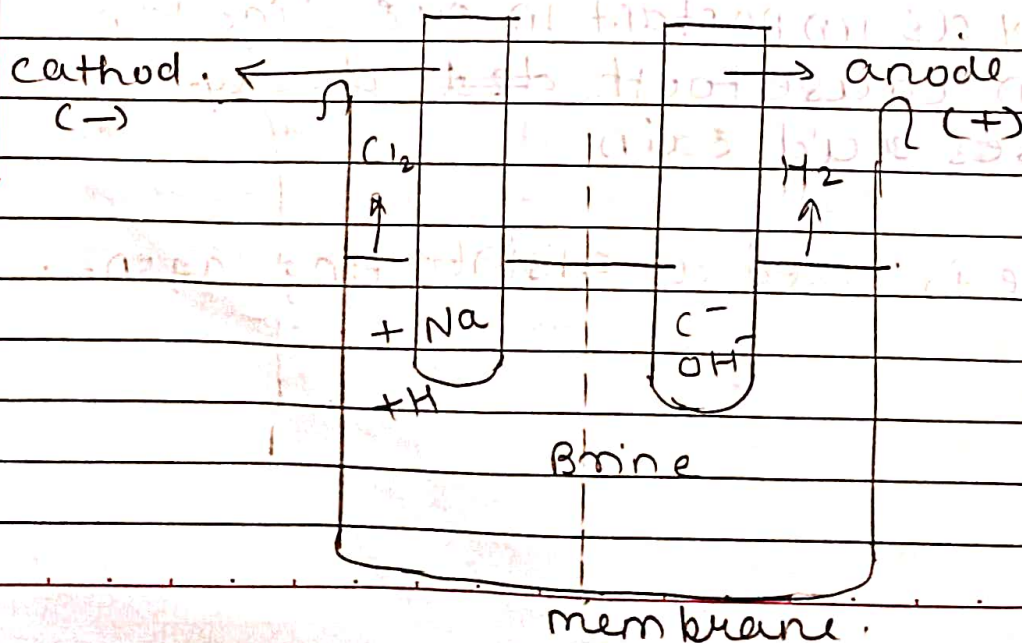 cathod. anode
(-) (+)
Cl₂ H₂
+ Na C⁻
OH⁻
+H
Brine
membrane.